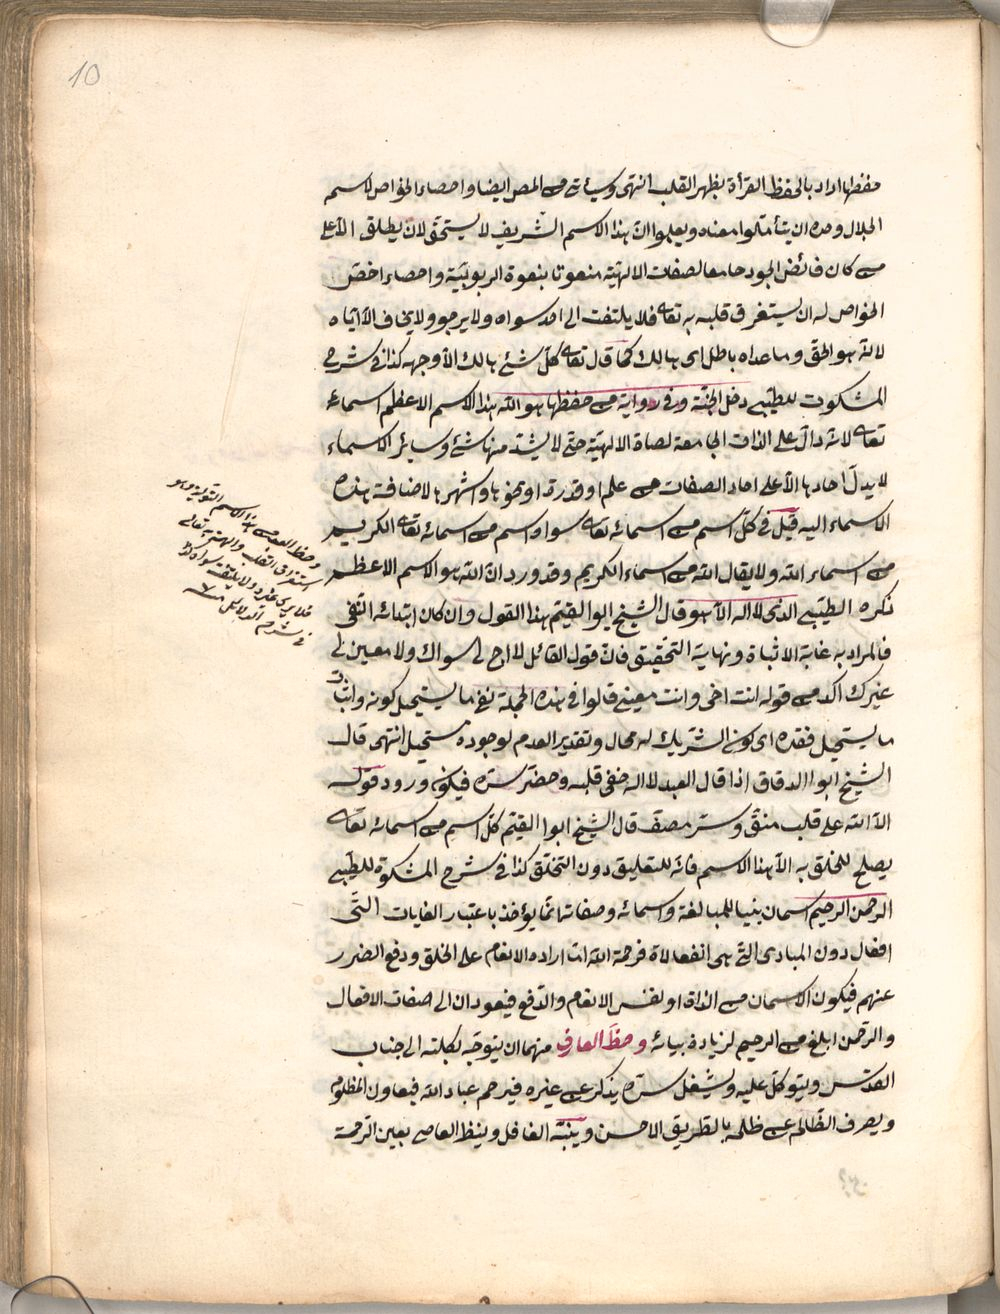 10
حفظها اراد بالحفظ القرأة بظهر القلب انتهى وسيأتى من المص ايضا واحصاء الخواص لاسم
الجلال وحده ان يتأملوا معناه ويعلموا ان هذا الاسم الشريف لا يستحق لان يطلق الا على
من كان فائض الجود جامعا لصفات الالهية منعوتا بنعوة الربوبية واحصاء اخص
الخواص له ان يستغرق قلبه به تعالى فلا يلتفت الى احد سواه ولا يرجو ولا يخاف الا اياه
لانه هو الحق وما عداه باطل اى هالك كما قال تعالى كل شئ هالك الا وجهه كذا فى شرح
المشكوت للطيبى دخل الجنة وفى رواية من حفظها هو الله هذا الاسم الاعظم اسماء
تعالى لانه دال على الذات الجامعة لصفاة الالهية حتى لا يشذ منها شئ وسائر الاسماء
لا يدل احادها الا على احاد الصفات من علم او قدرة او نحوها واشهرها لاضافة هذه
الاسماء اليه قيل فى كل اسم من اسمائه تعالى سواه اسم من اسمائه تعالى الكريم
من اسماء الله ولا يقال الله من اسماء الكريم وقد ورد ان الله هو الاسم الاعظم
ذكره الطيبى الذى لا اله الا هو قال الشيخ ابو القيتم هذا القول وان كان ابتدائه النفى
فالمراد به غاية الاثباة ونهاية التحقيق فان قول القائل لا اخ لى سواك ولا معين لى
غيرك اكد من قوله انت اخى وانت معينى قالوا فى هذه الجملة نفى ما يستحيل كونه واثبات
ما يستحيل فقده اى كون الشريك له محال وتقدير العدم لوجوده مستحيل انتهى قال
الشيخ ابوا الدقاق اذا قال العبد لا اله صفى قلبه وحضر سره فيكون ورود قوله
الا الله على قلب منقى وسر مصفى قال الشيخ ابوا القيتم كل اسم من اسمائه تعالى
يصلح للخلق به الا هذا الاسم فانه للتعليق دون التخلق كذا فى شرح المشكوة للطيبى
الرحمن الرحيم اسمان بنيا للمبالغة واسمائه وصفاته انما يؤخذ باعتبار الغايات التى
افعال دون المبادى التى هى انفعالاة فرحمة الله اما اراده الانعام على الخلق ودفع الضرر
عنهم فيكون الاسمان من الذاة او نفس الانعام والدفع فيعودان الى صفات الافعال
والرحمن ابلغ من الرحيم لزيادة بيائه وحظ العارف منهما ان يتوجه بكلته الى جناب
القدس ويتوكل عليه ويشغل سره بذكر عن غيره فيرحم عباد الله فيعاون المظلوم
ويصرف الظالم عن ظلمه بالطريق الاحسن وينبه الغافل وينظ العاصى بعين الرحمة
وحظ العبد من هذا الاسم وهو
استغراق القلب والهمة به تعالى
فلا يرى غيره ولا يلتفت سواه
فى شرح الدلائل